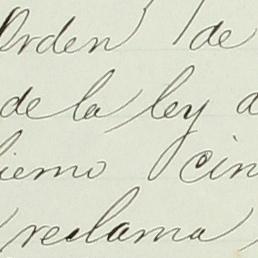 Orden de
de la ley d
ierno cin
reclama